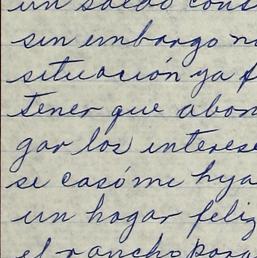 un saldo cons
sin embargo no
situación ya f
tener que abon
gar los interese
se casó mi hya
un hogar feliz
el rancho para